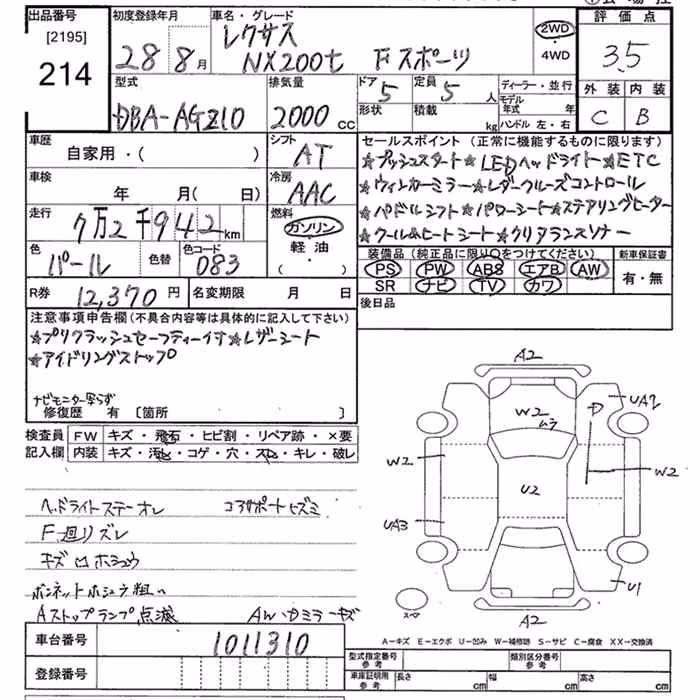 出品番号 初度登録年月 車名・グレード 評価点
[2195]
214 28年8月 レクサス NX200t Fスポーツ 2WD・4WD 3.5
型式 排気量 ドア 5 定員 5人 ディーラー・並行 外装 内装
DBA-AGZ10 2000cc 形状 積載 kg モデル年式 年 ハンドル 左・右 C B
車歴 自家用・( ) シフト AT セールスポイント(正常に機能するものに限ります)
☆プッシュスタート☆LEDヘッドライト☆ETC
車検 年 月( 日) 冷房 AAC ☆ウィンカーミラー☆レダークルーズコントロール
走行 7万2千942km 燃料 ガソリン・軽油・( ) ☆パドルシフト☆パワーシート☆ステアリングヒーター
☆クール&ヒートシート☆クリアランスソナー
色 パール 色替 色コード 083 装備品(純正品に限り○をつけてください) 新車保証書
PS PW ABS エアB AW 有・無
SR ナビ TV カワ
R券 12,370円 名変期限 月 日 後日品
注意事項申告欄(不具合内容等は具体的に記入して下さい)
☆プリクラッシュセーフティー付☆レザーシート
☆アイドリングストップ
ナビモニター写らず
修復歴 有 〔箇所 〕
検査員記入欄 FW キズ・飛石・ヒビ割・リペア跡・×要
内装 キズ・汚れ・コゲ・穴・スレ・キレ・破レ
ヘッドライトステーオレ コアサポートヒズミ
F廻りズレ
キズ凹ホシュウ
ボンネットホシュウ粗い
Aストップランプ点滅 AWカミラーキズ
車台番号 1011310
登録番号
A2
W2
ムラ
UA2
W2
W2
U2
UA3
U1
スペア
A2
A―キズ E―エクボ U―凹み W―補修跡 S―サビ C―腐食 XX―交換済
型式指定番号 参考 類別区分番号 参考
車庫証明用 参考 長さ cm 幅 cm 高さ cm